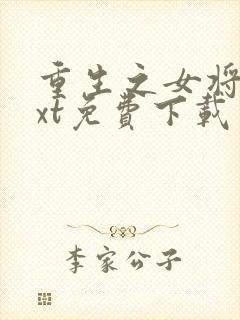 重生之女将
xt免費下載
李家公子